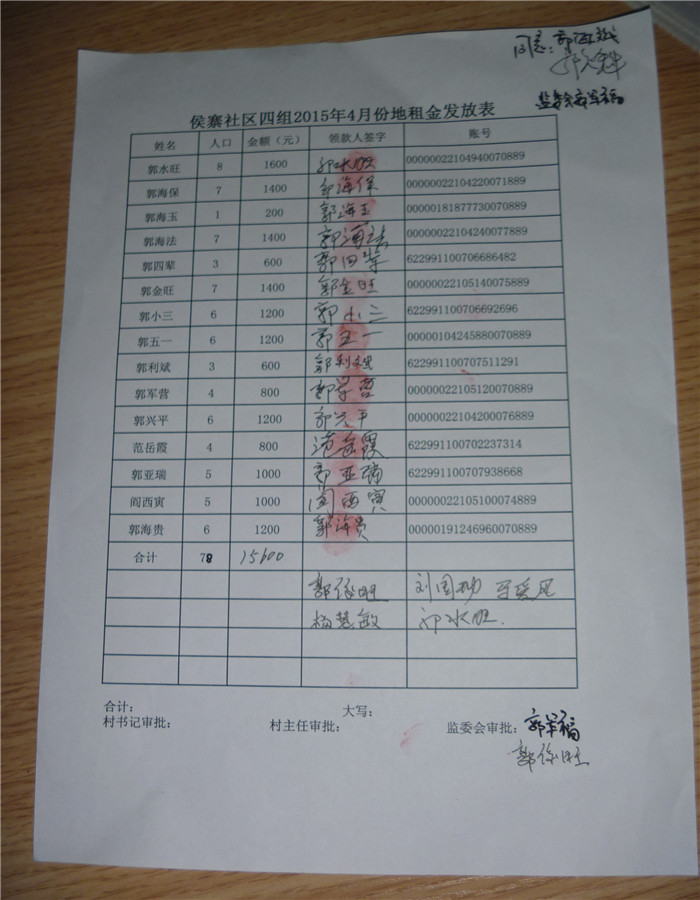 同意：郭西斌
监委会 郭军福
侯寨社区四组2015年4月份地租金发放表
姓名 人口 金额（元） 领款人签字 账号
郭水旺 8 1600 郭水旺 00000022104940070889
郭海保 7 1400 郭海保 00000022104220071889
郭海玉 1 200 郭海玉 00000181877730070889
郭海法 7 1400 郭海法 00000022104240077889
郭四辈 3 600 郭四辈 622991100706686482
郭金旺 7 1400 郭金旺 00000022105140075889
郭小三 6 1200 郭小三 622991100706692696
郭五一 6 1200 郭五一 00000104245880070889
郭利斌 3 600 郭利斌 622991100707511291
郭军营 4 800 郭军营 00000022105120070889
郭兴平 6 1200 郭兴平 00000022104200076889
范岳霞 4 800 范岳霞 622991100702237314
郭亚瑞 5 1000 郭亚瑞 622991100707938668
阎西寅 5 1000 闫西寅 00000022105100074889
郭海贵 6 1200 郭海贵 00000191246960070889
合计 78 15600
郭保旺 刘国 马爱凤
杨慧敏 郭水旺.
合计： 大写：
村书记审批： 村主任审批： 监委会审批：郭军福
郭保旺